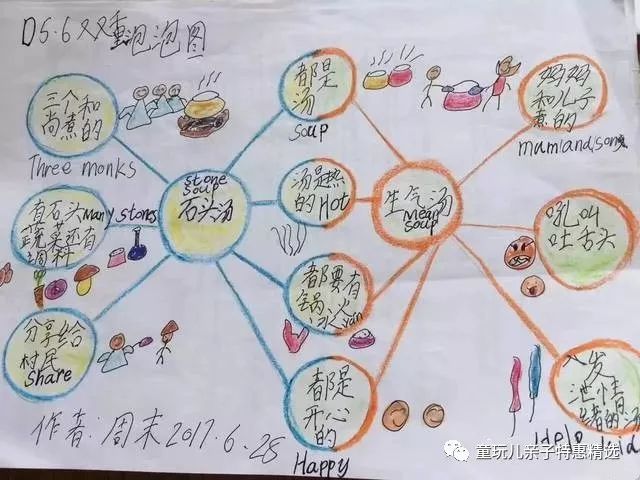 D5.6 双重泡泡图
三个和
尚煮的
Three monks
有石头 Many stons
蔬菜还有
调料
分享给
村民
Share
stone
soup
石头汤
都是
汤
soup
汤是热
的 Hot
都要有
锅
火
都是
开心
的
Happy
生气汤
Mean
soup
妈妈
和儿子
煮的
mumandson
吼叫
吐舌头
发
泄情
绪的汤
Help
作者:周末 2017.6.28
童玩儿亲子特惠精选